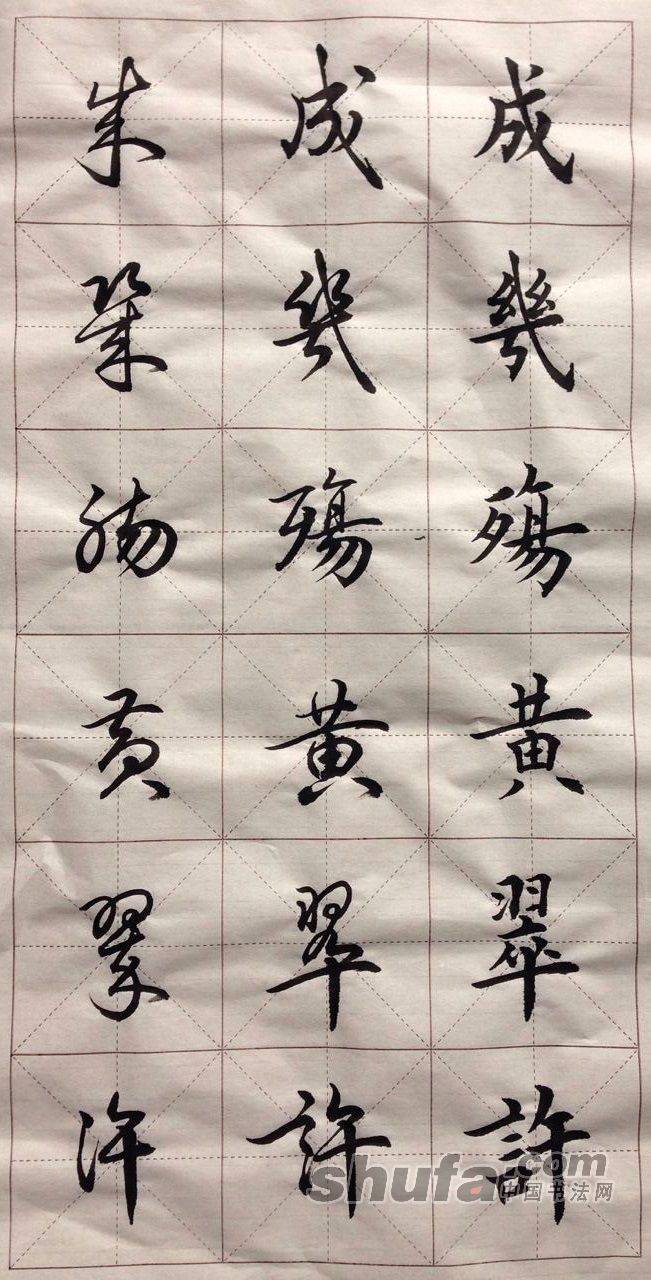 成幾殤黄翠許
成幾殤黄翠許
成幾殤黄翠許
shufa.com
中国书法网